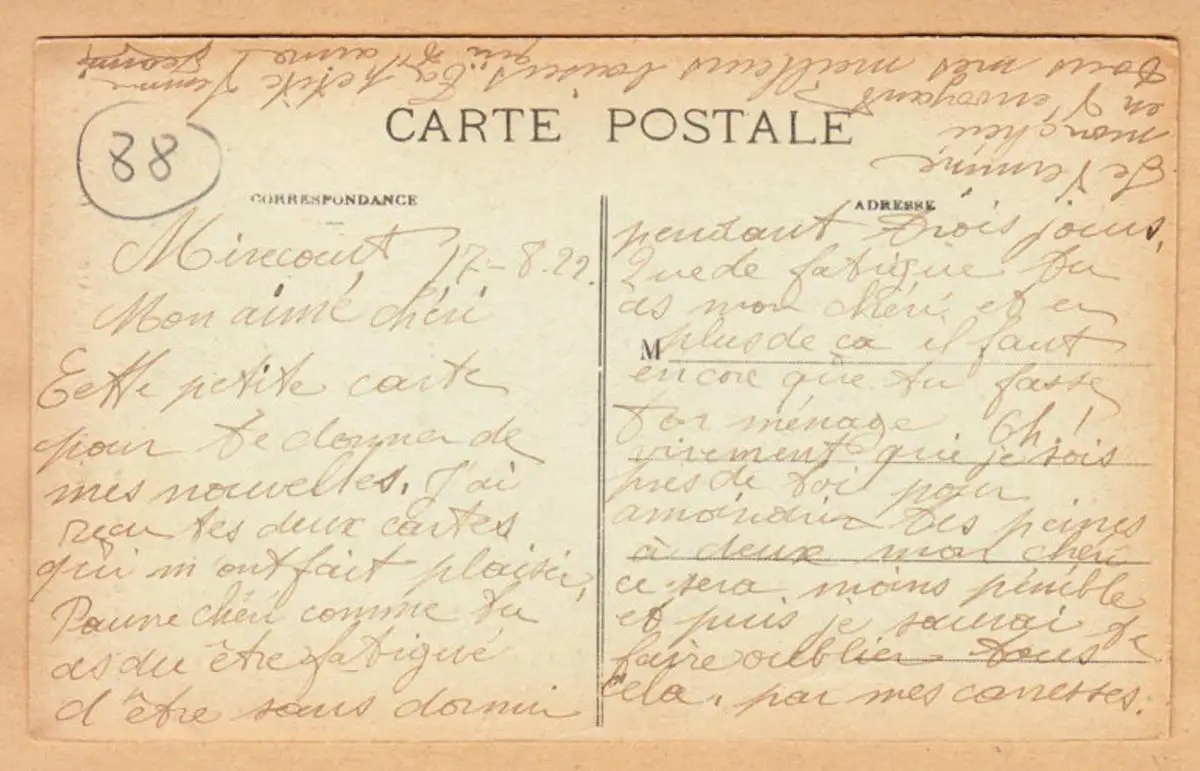 88
CARTE POSTALE
CORRESPONDANCE
Mirecourt 17-8-22.
Mon aimé chéri
Cette petite carte
pour te donner de
mes nouvelles, J'ai
reçu tes deux cartes
qui m'ont fait plaisir,
Pauvre chéri comme tu
as du être fatigué
d'être sans dormir
ADRESSE
pendant trois jours,
Que de fatigue tu
as mon chéri et en
M
plus de ça il faut
encore que tu fasse
ton ménage Oh!
vivement que je sois
près de toi pour
amoindrir tes peines
à deux mon chéri
ce sera moins pénible
et puis je saurai te
faire oublier tous
cela, par mes carresses.
Je termine
mon chéri
en t'envoyant
tous mes meilleurs baisers
Ta petite femme
qui t'aime